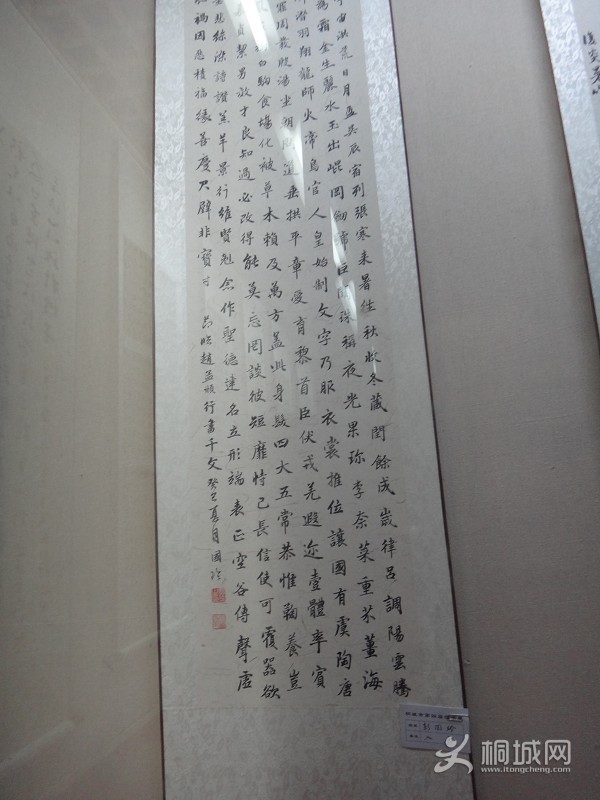 宙洪荒日月盈昃辰宿列張寒来暑往秋收冬藏閏餘成歲律呂調陽雲騰
為霜金生麗水玉出崐岡劍號巨闕珠稱夜光果珍李柰菜重芥薑海
潜羽翔龍師火帝鳥官人皇始制文字乃服衣裳推位讓國有虞陶唐
周發殷湯坐朝問道垂拱平章愛育黎首臣伏戎羌遐迩壹體率賓
白駒食場化被草木賴及萬方盖此身髮四大五常恭惟鞠養豈
貞絜男效才良知過必改得能莫忘罔談彼短靡恃己長信使可覆器欲
悲絲染詩讚羔羊景行維賢剋念作聖德建名立形端表正空谷傳聲虛
禍因惡積福緣善慶尺璧非寶寸
臨趙孟頫行書千文癸巳夏月國玲
桐城网
www.itongcheng.com